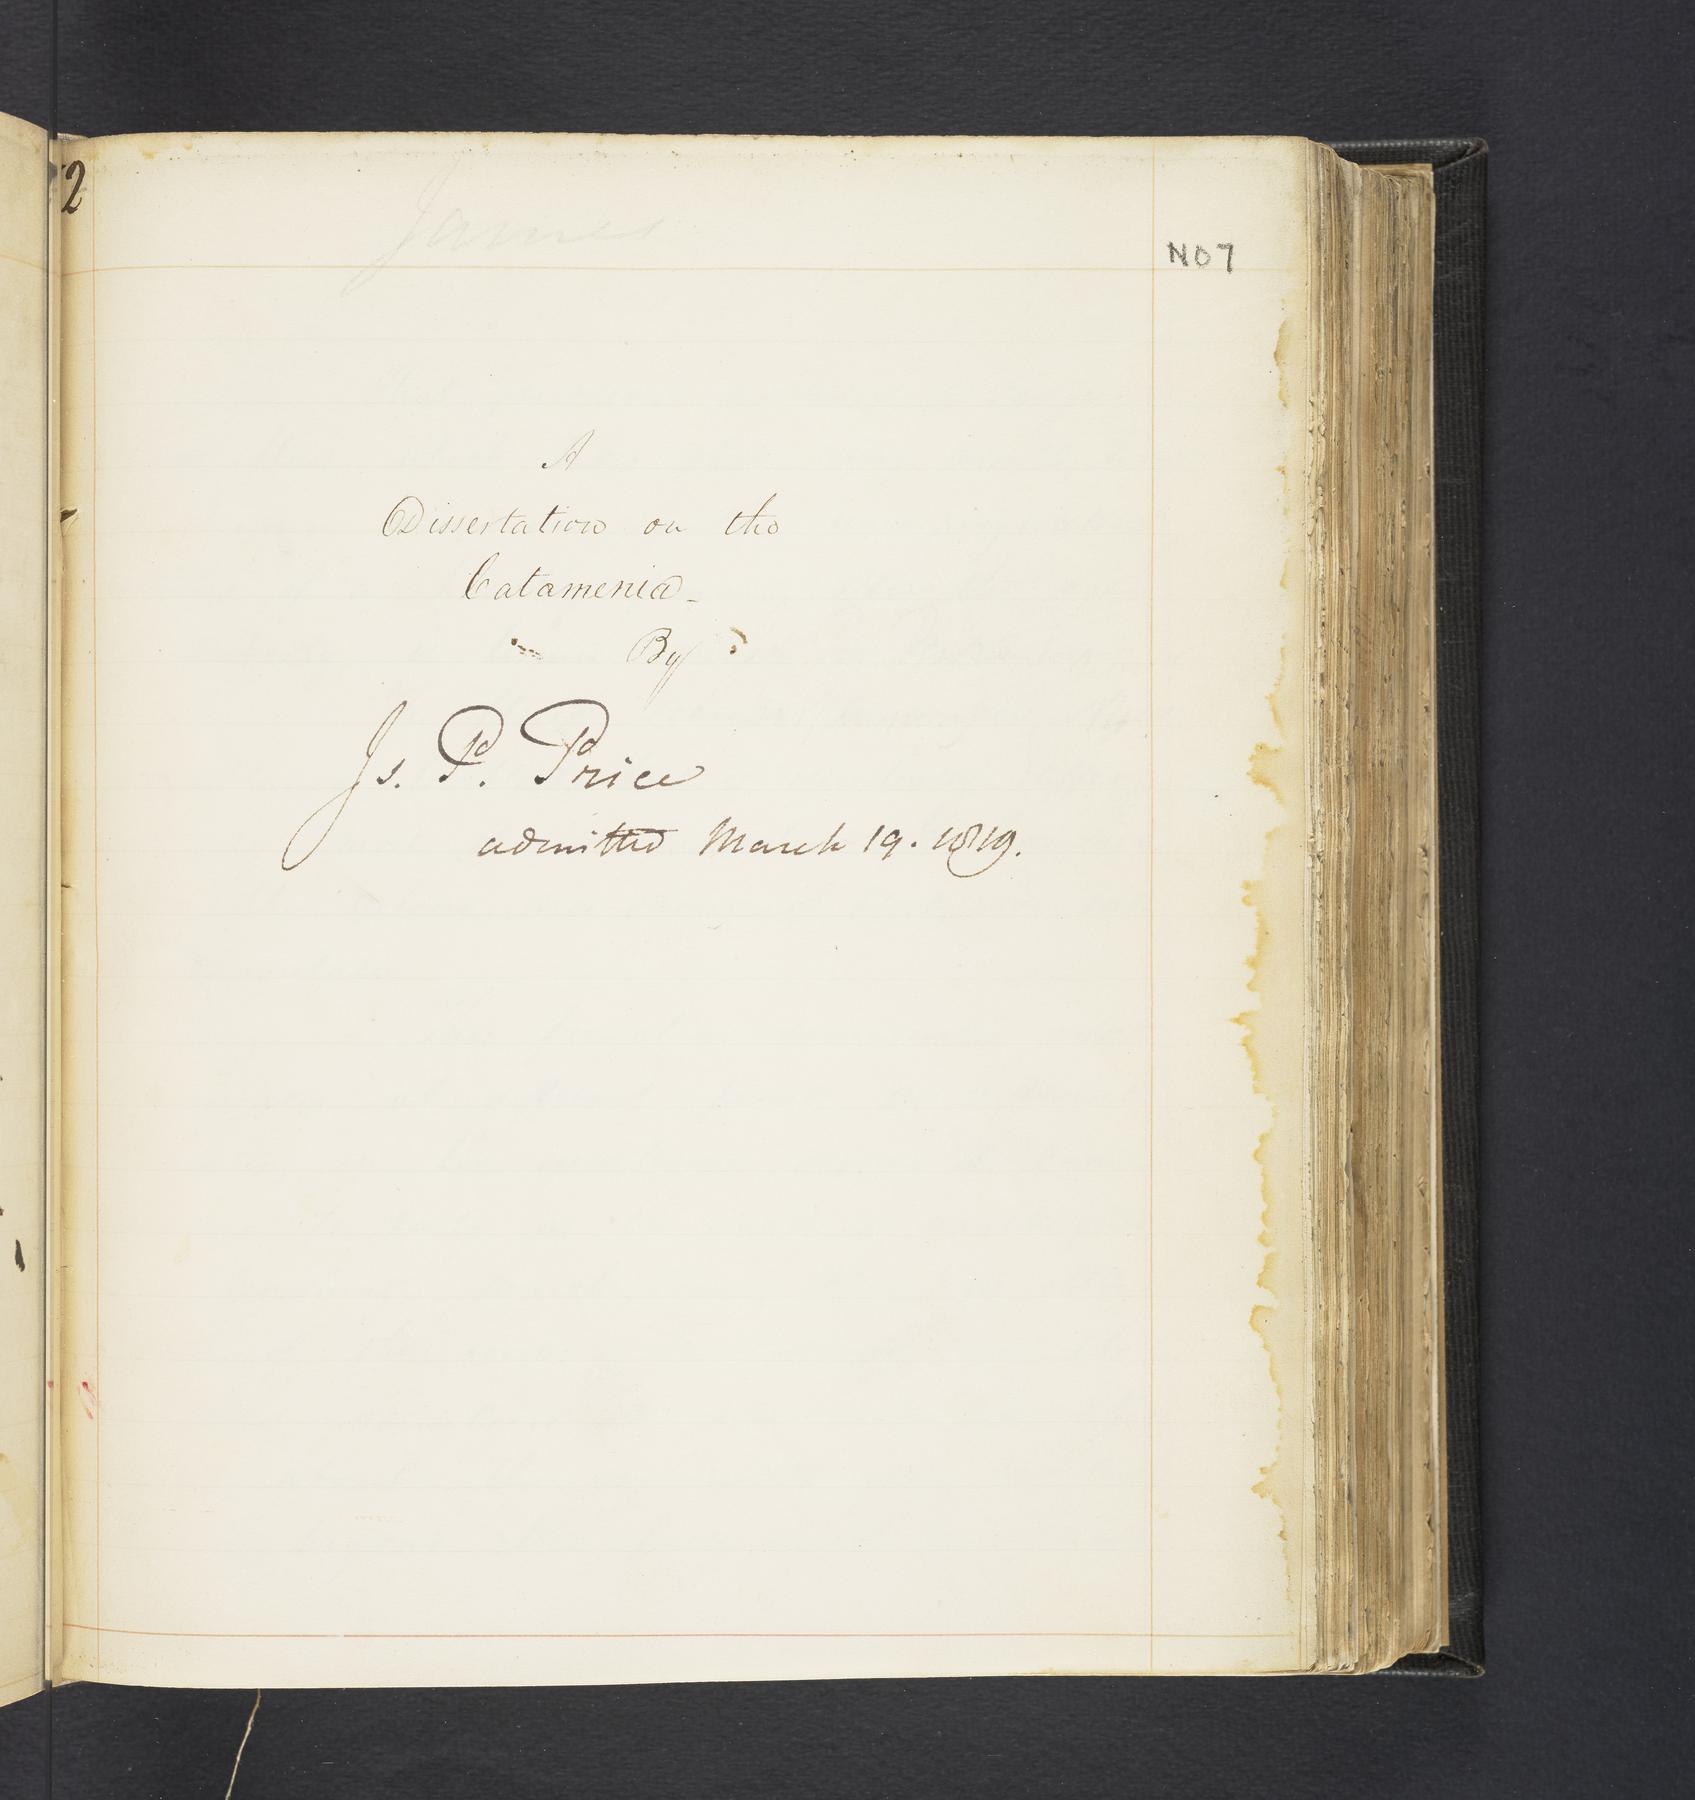 2
James
NO 7
A
Dissertation on the
Catamenia -
By
Js. P. Price
admitted March 19. 1819.